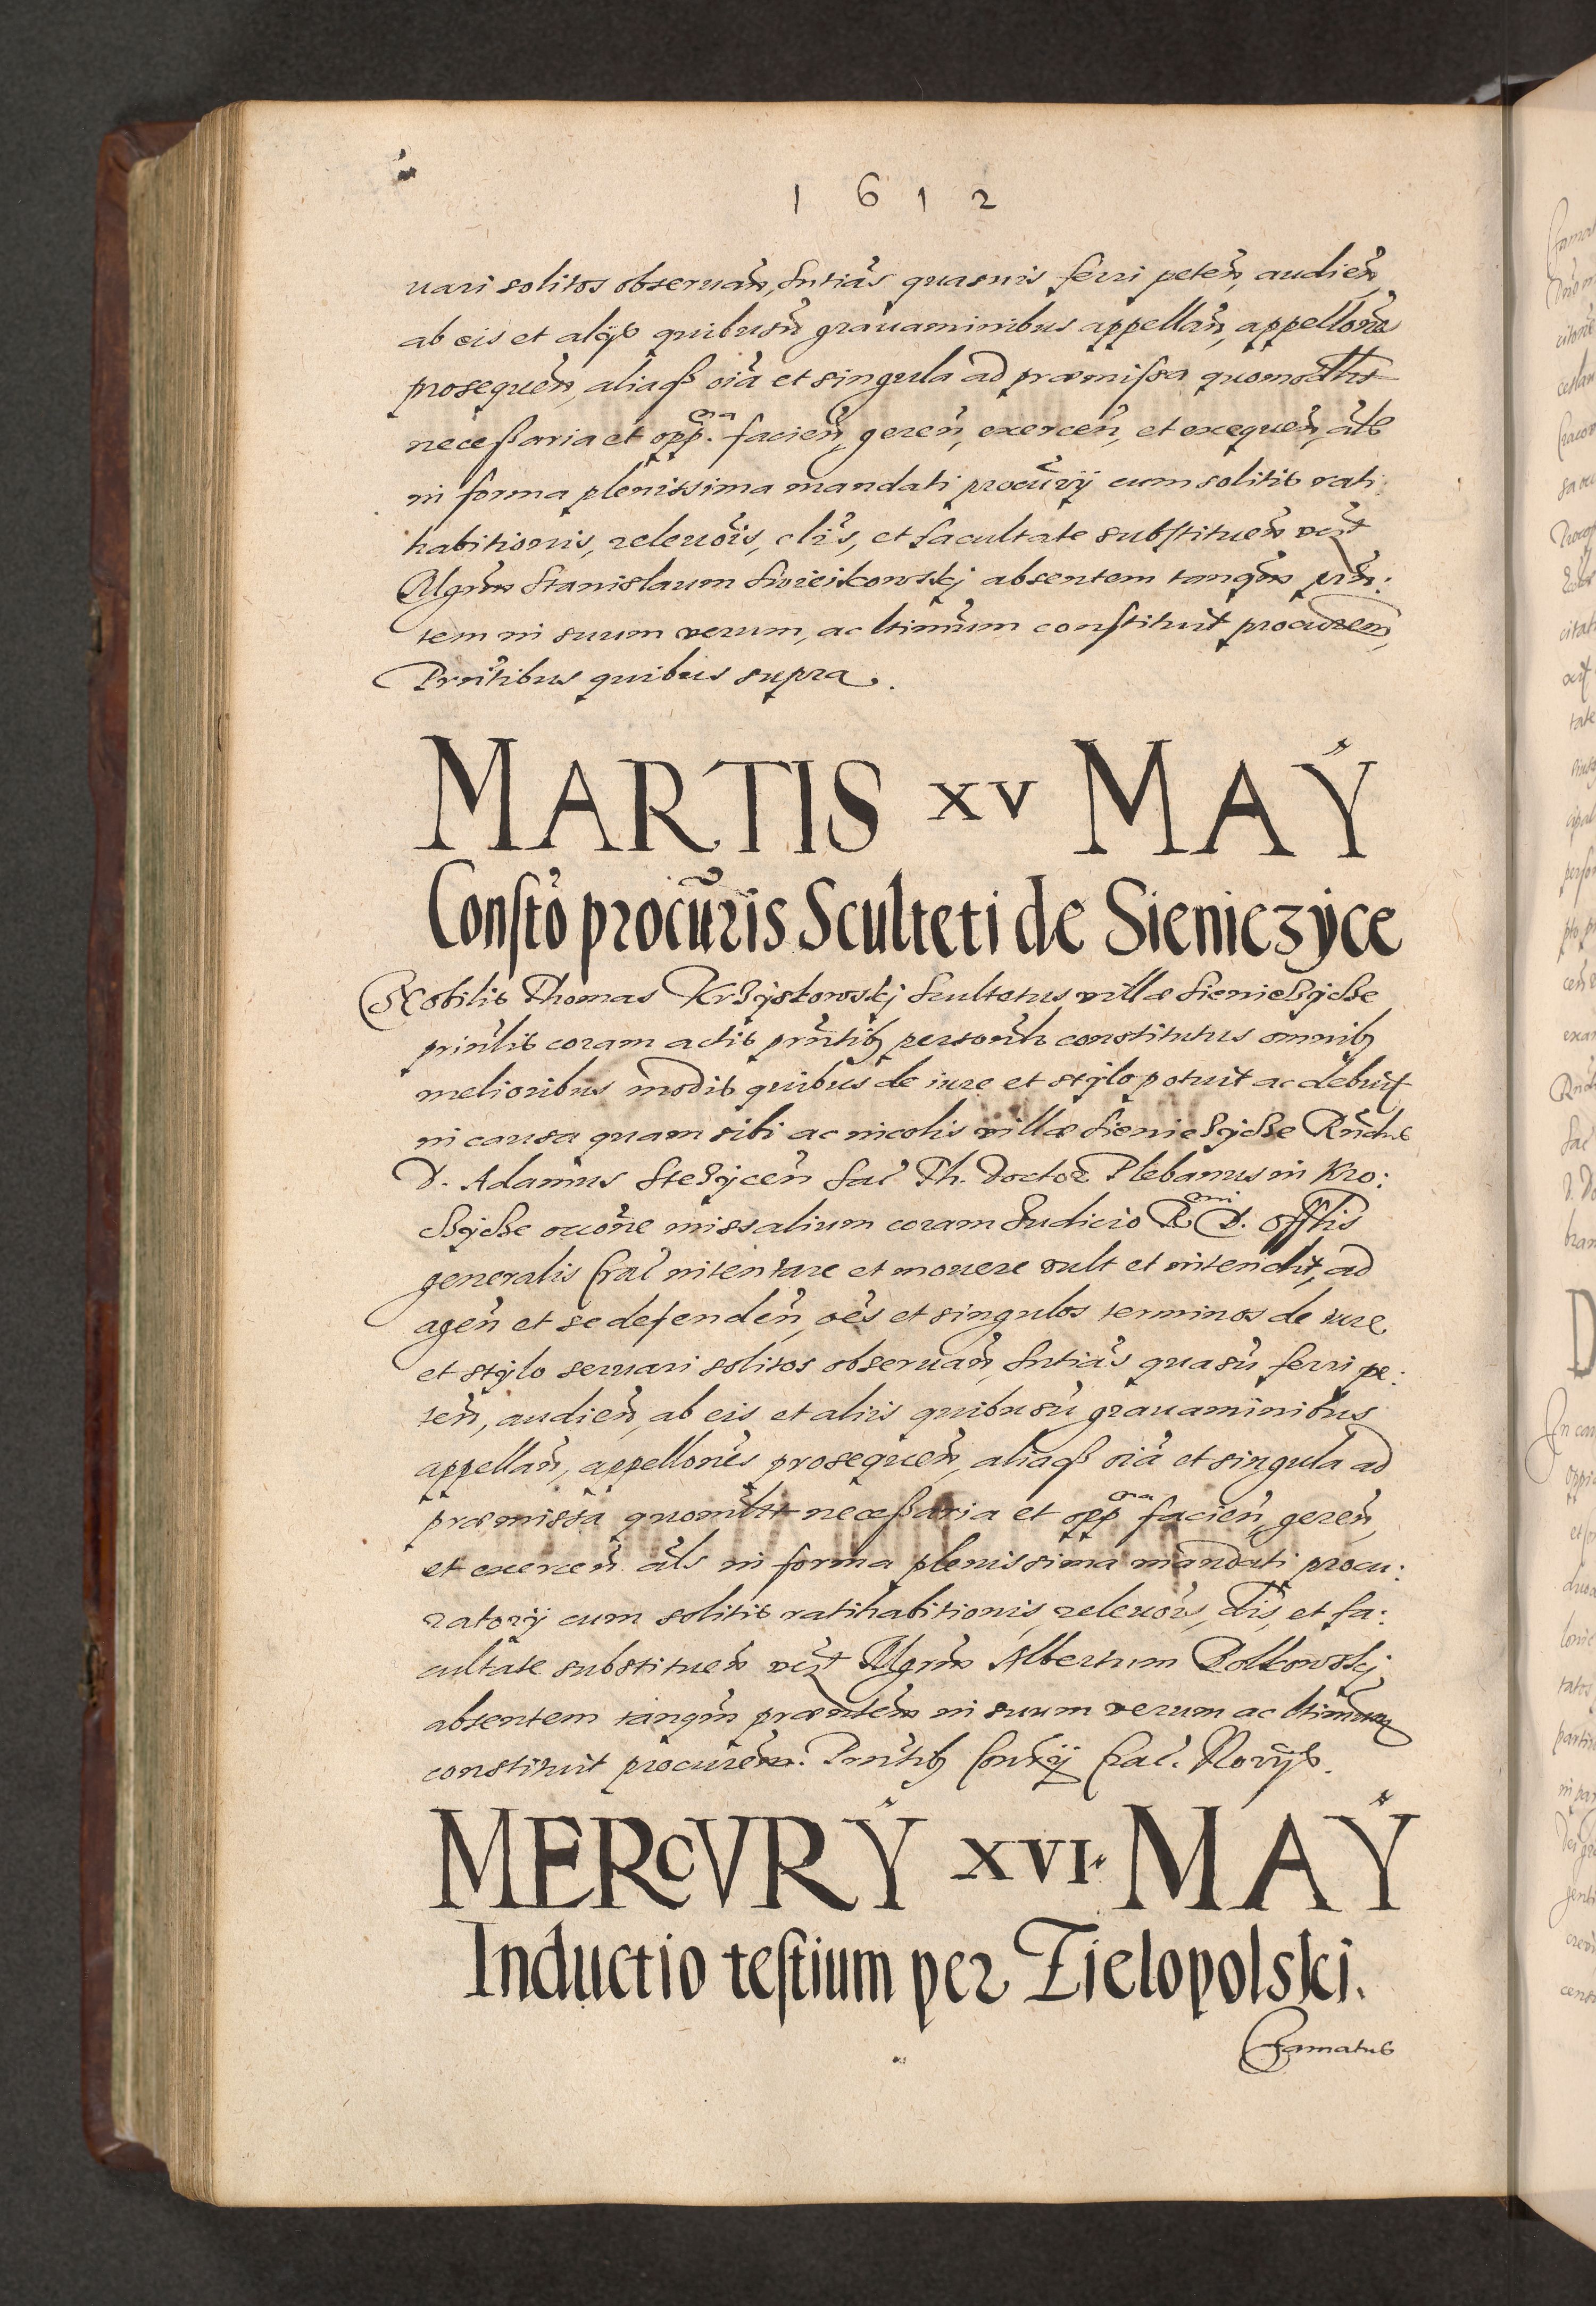 1612
uari solitos obseruan̄, Sntiās quasuis ferri peten̄, audien̄,
ab eis et alijs quibusū grauaminibus appellan̄, appellōnes
prosequen̄, aliasq̨ oīa et singula ad præmissa quomodłt
necessaria et opp.na facien̄, geren̄, exercen̄, et exequen̄, al̄s
in forma plenissima mandati procūrij cum solitis rati
habitionis, releuōis, cl̄is, et facultate substituen̄ vid̄t
Mgrūm Stanislaum absentem tanqm̄ prn̄:
tem in suum verum, ac ltimūm constituit procurēm,
Prn̄tibus quibus supra.
MARTIS XV MAŸ
Consto procūris Sculteti de Sienieczyce
Nobilis Thomas Krzystowskj Scultetus villæ Siemiechyche
prin̄lis coram actis prn̄tibꝫ personlr̄ constitutus omnibꝫ
melioribus modis quibus de iure et stylo potuit ac debuit
in causa quam sibi ac incolis villæ Rn̄dus
D. Adamus Stezycen̄ Sac̄ Th. Doctor Plebanus in Kro:
occōne missalium coram Iudicio R.mi D. Offl̄is
generalis Crac̄ intentare et mouere vult et intendit, ad
agen̄ et se defenden̄, oēs et singulos terminos de iure
et stylo seruari solitos obseruan̄, Sntiās quasū ferri pe:
ten̄, audien̄, ab eis et aliis quibusū grauaminibus
appellan̄, appellonēs prosequen̄, aliasq̨ oīa et singula ad
præmissa quomłt necessaria et opp.na facien̄, geren̄,
et exercen̄ al̄s in forma plenissima mandati procu:
ratorij cum solitis ratihabitionis, releuōis, cl̄is, et fa:
cultate substituen̄ vid̄t Mgrūm Albertum Bolkowskj
absentem tanqm̄ præntēm in suum verum ac ltimūm
constituit procurēm. Prn̄tibꝫ Crac. Notrijs.
MERCVRŸ XVI. MAŸ
Inductio testium per Zielopolski.
Famatus